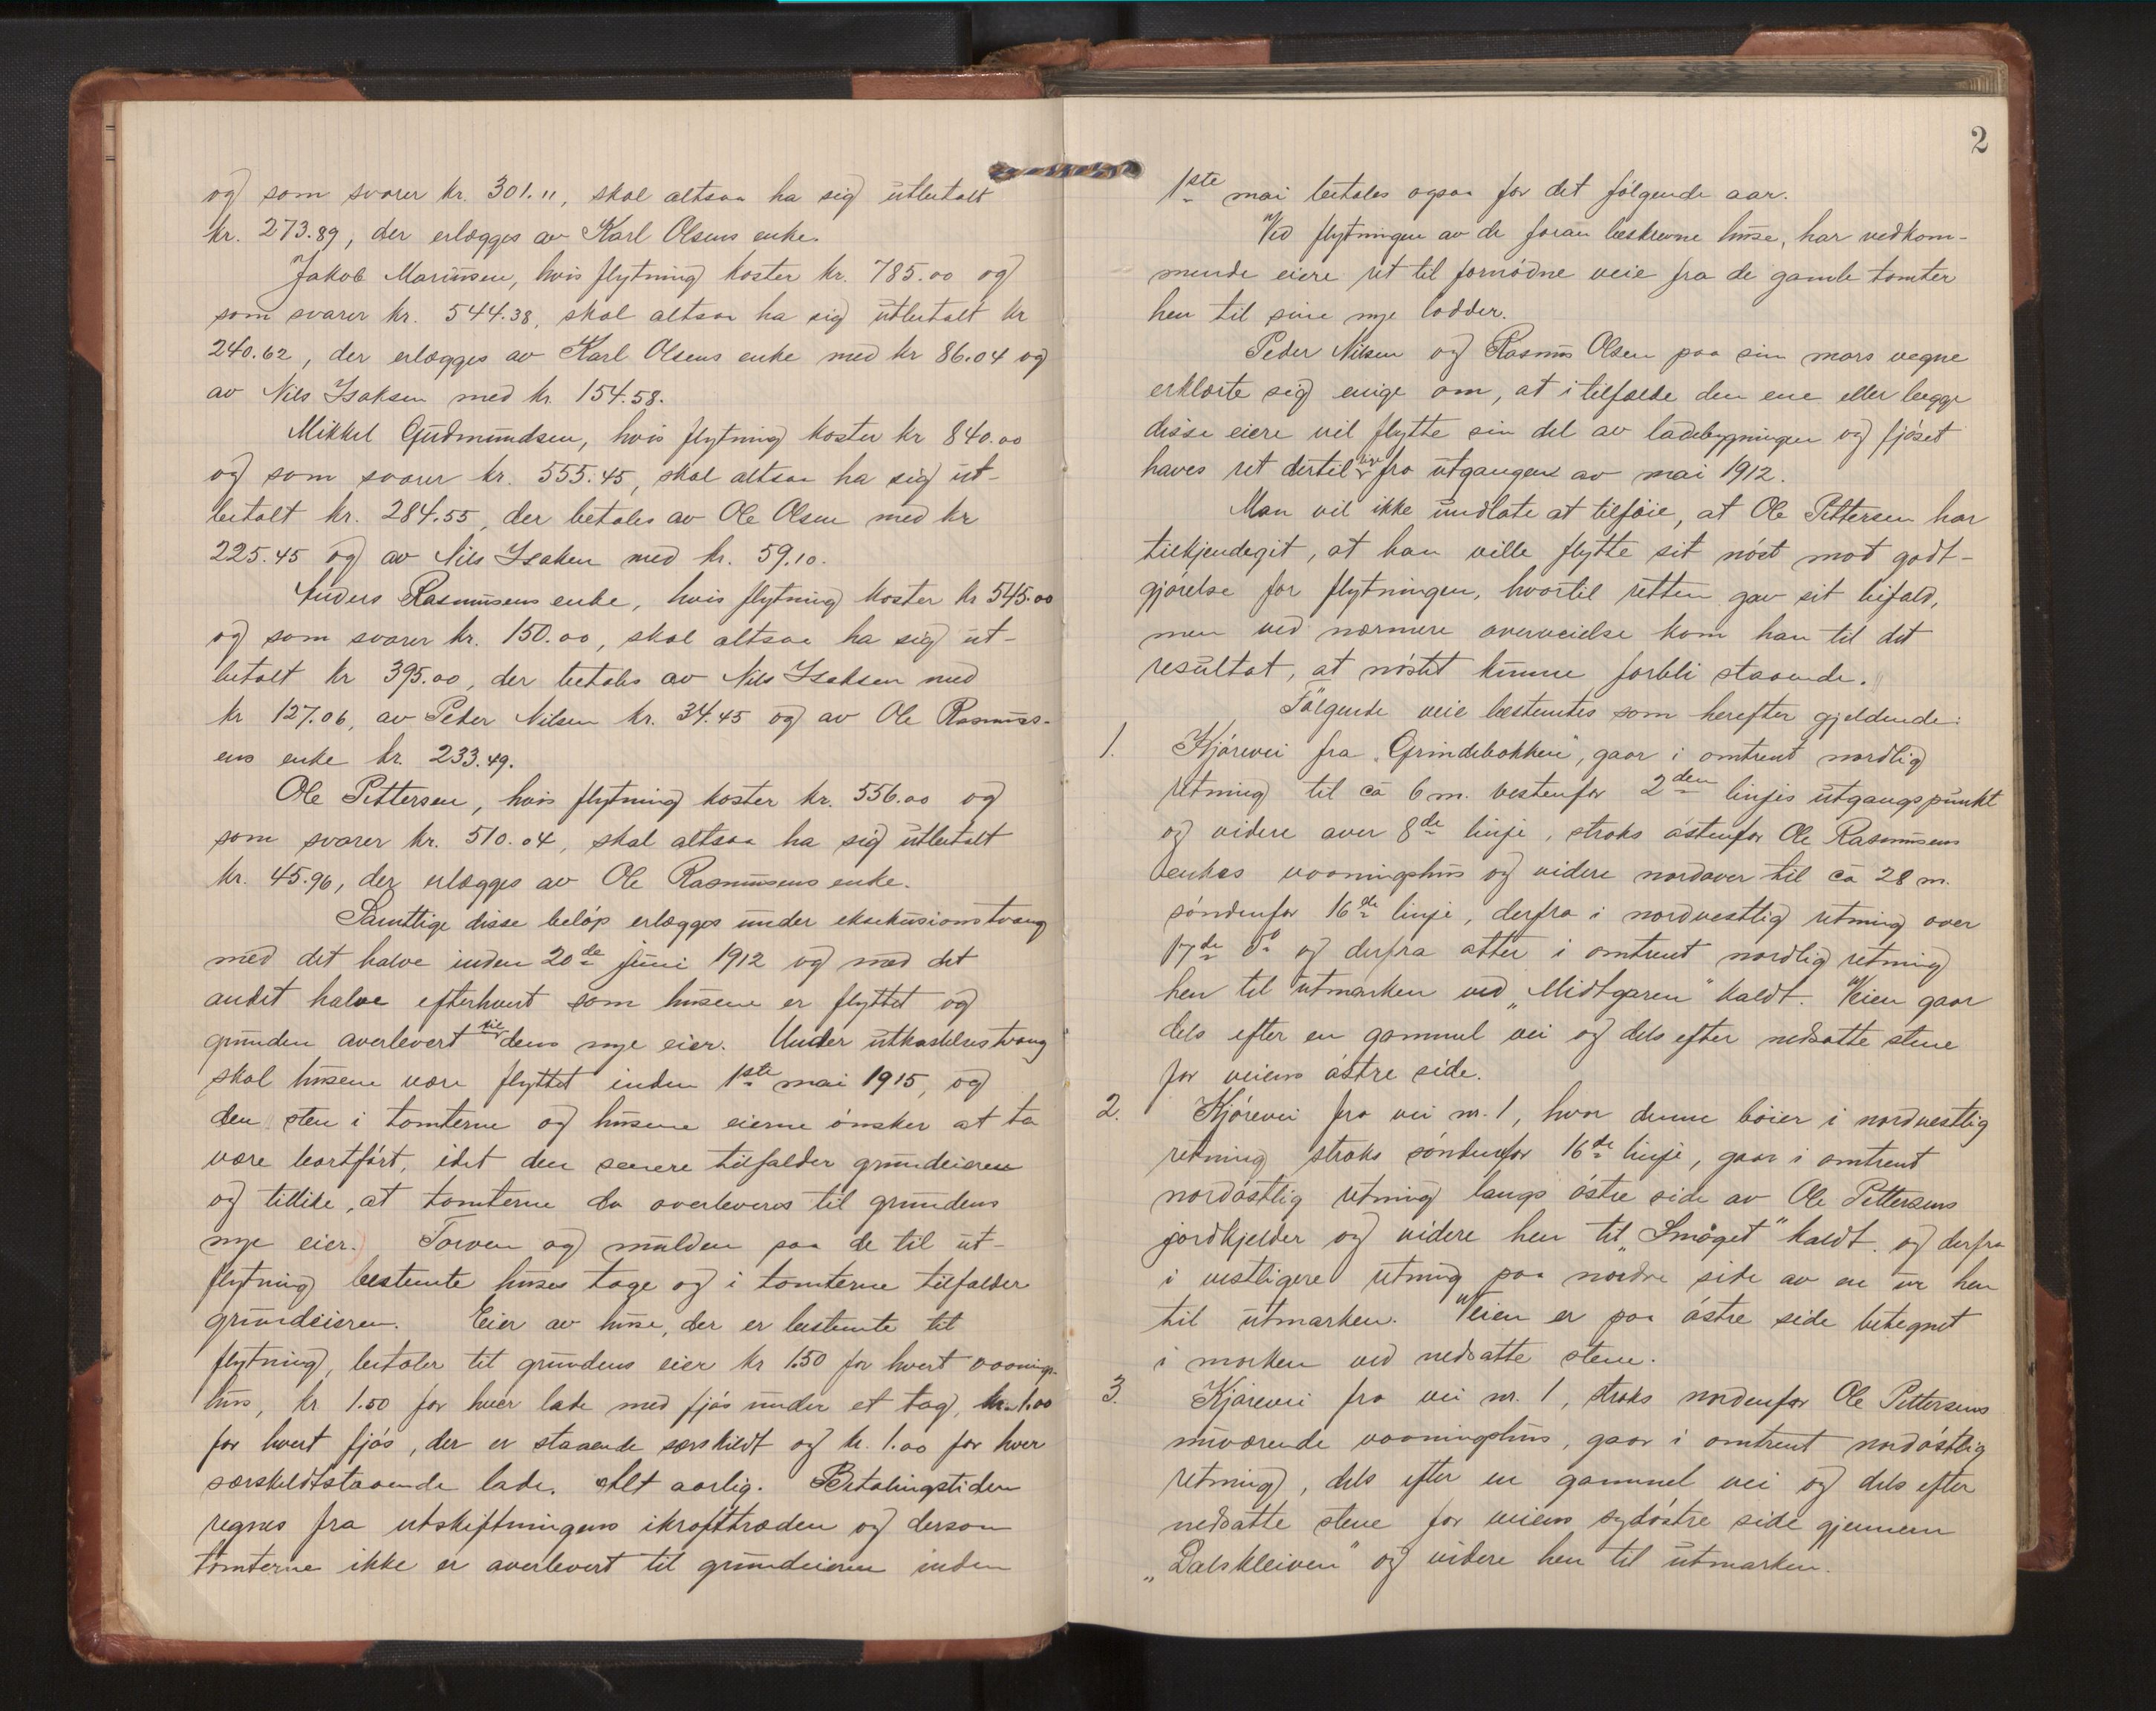 og som svarer kr. 301.11, skal altsaa ha sig utbetalt
kr. 273.89, der erlægges av Karl Olsens enke.
Jakob Mariusen, hvis flytning koster kr. 785.00 og
som svarer kr. 544.38, skal altsaa ha sig utbetalt kr
240.62, der erlægges av Karl Olsens enke med kr 86.04 og
av Nils Isaksen med kr. 154.58.
Mikkel Gudmundsen, hvis flytning koster kr 840.00
og som svarer kr. 555.45, skal altsaa ha sig ut-
betalt kr. 284.55, der betales av Ole Olsen med kr
225.45 og av Nils Isaksen med kr. 59.10.
Anders Rasmusens enke, hvis flytning koster kr 545.00
og som svarer kr. 150.00, skal altsaa ha sig ut-
betalt kr 395.00, der betales av Nils Isaksen med
kr 127.06, av Peder Nilsen kr. 34.45 og av Ole Rasmus-
ens enke kr. 233.49.
Ole Pettersen, hvis flytning koster kr. 556.00 og
som svarer kr. 510.04, skal altsaa ha sig utbetalt
kr. 45.96, der erlægges av Ole Rasmusens enke.
Samtlige disse beløp erlægges under eksekusionstvang
med det halve inden 20de juni 1912 og med det
andet halve efterhvert som husene er flyttet og
grunden overlevert til dens nye eier. Under utkastelsestvang
skal husene være flyttet inden 1ste mai 1915, og
den sten i tomterne og husene eierne ønsker at ta
være bortført, idet den senere tilfalder grundeieren
og tillike, at tomterne da overleveres til grundens
nye eier. Torven og mulden paa de til ut-
flytning bestemte huses tage og i tomterne tilfalder
grundeieren. Eier av huse, der er bestemte til
flytning, betaler til grundens eier kr 1.50 for hvert vaanings-
hus, kr 1.50 for hver lade med fjøs under et tag, kr. 1.00
for hvert fjøs, der er staaende særskildt og kr. 1.00 for hver
særskildtstaaende lade. Alt aarlig. Betalingstiden
regnes fra utskiftningens ikrafttræden og dersom
tomterne ikke er overlevert til grundeieren inden
2
1ste mai betales ogsaa for det følgende aar.
Ved flytningen av de foran beskrevne huse, har vedkom-
mende eiere ret til fornødne veie fra de gamle tomter
hen til sine nye lodder.
Peder Nilsen og Rasmus Olsen paa sin mors vegne
erklærte sig enige om, at i tilfælde den ene eller begge
disse eiere vil flytte sin del av ladebygningen og fjøset
haves ret dertil like fra utgangen av mai 1912.
Man vil ikke undlate at tilføie, at Ole Pettersen har
tilkjendegit, at han ville flytte sit nøst mot godt-
gjørelse for flytningen, hvortil retten gav sit bifald,
men ved nærmere overveielse kom han til det
resultat, at nøstet kunne forbli staaende.
Følgende veie bestemtes som herefter gjeldende:
1. Kjørevei fra „Grindebakken", gaar i omtrent nordlig
retning til ca 6 m. vestenfor 2den linjes utgangspunkt
og videre over 8de linje, straks østenfor Ole Rasmusens
enkes vaaningshus og videre nordover til ca 28 m.
søndenfor 16de linje, derfra i nordvestlig retning over
17de do og derfra atter i omtrent nordlig retning
hen til utmarken ved „Midtgaren" kaldt. Veien gaar
dels efter en gammel vei og dels efter nedsatte stene
for veiens østre side.
2. Kjørevei fra vei nr. 1, hvor denne bøier i nordvestlig
retning straks søndenfor 16de linje, gaar i omtrent
nordøstlig retning langs østre side av Ole Pettersens
jordkjelder og videre hen til „Smøget" kaldt. og derfra
i vestligere retning paa nordre side av en ur hen
til utmarken. Veien er paa østre side betegnet
i marken ved nedsatte stene.
3. Kjørevei fra vei nr. 1, straks nordenfor Ole Pettersens
nuværende vaaningshus, gaar i omtrent nordøstlig
retning, dels efter en gammel vei og dels efter
nedsatte stene for veiens sydøstre side gjennem
„Dalskleiven" og videre hen til utmarken.